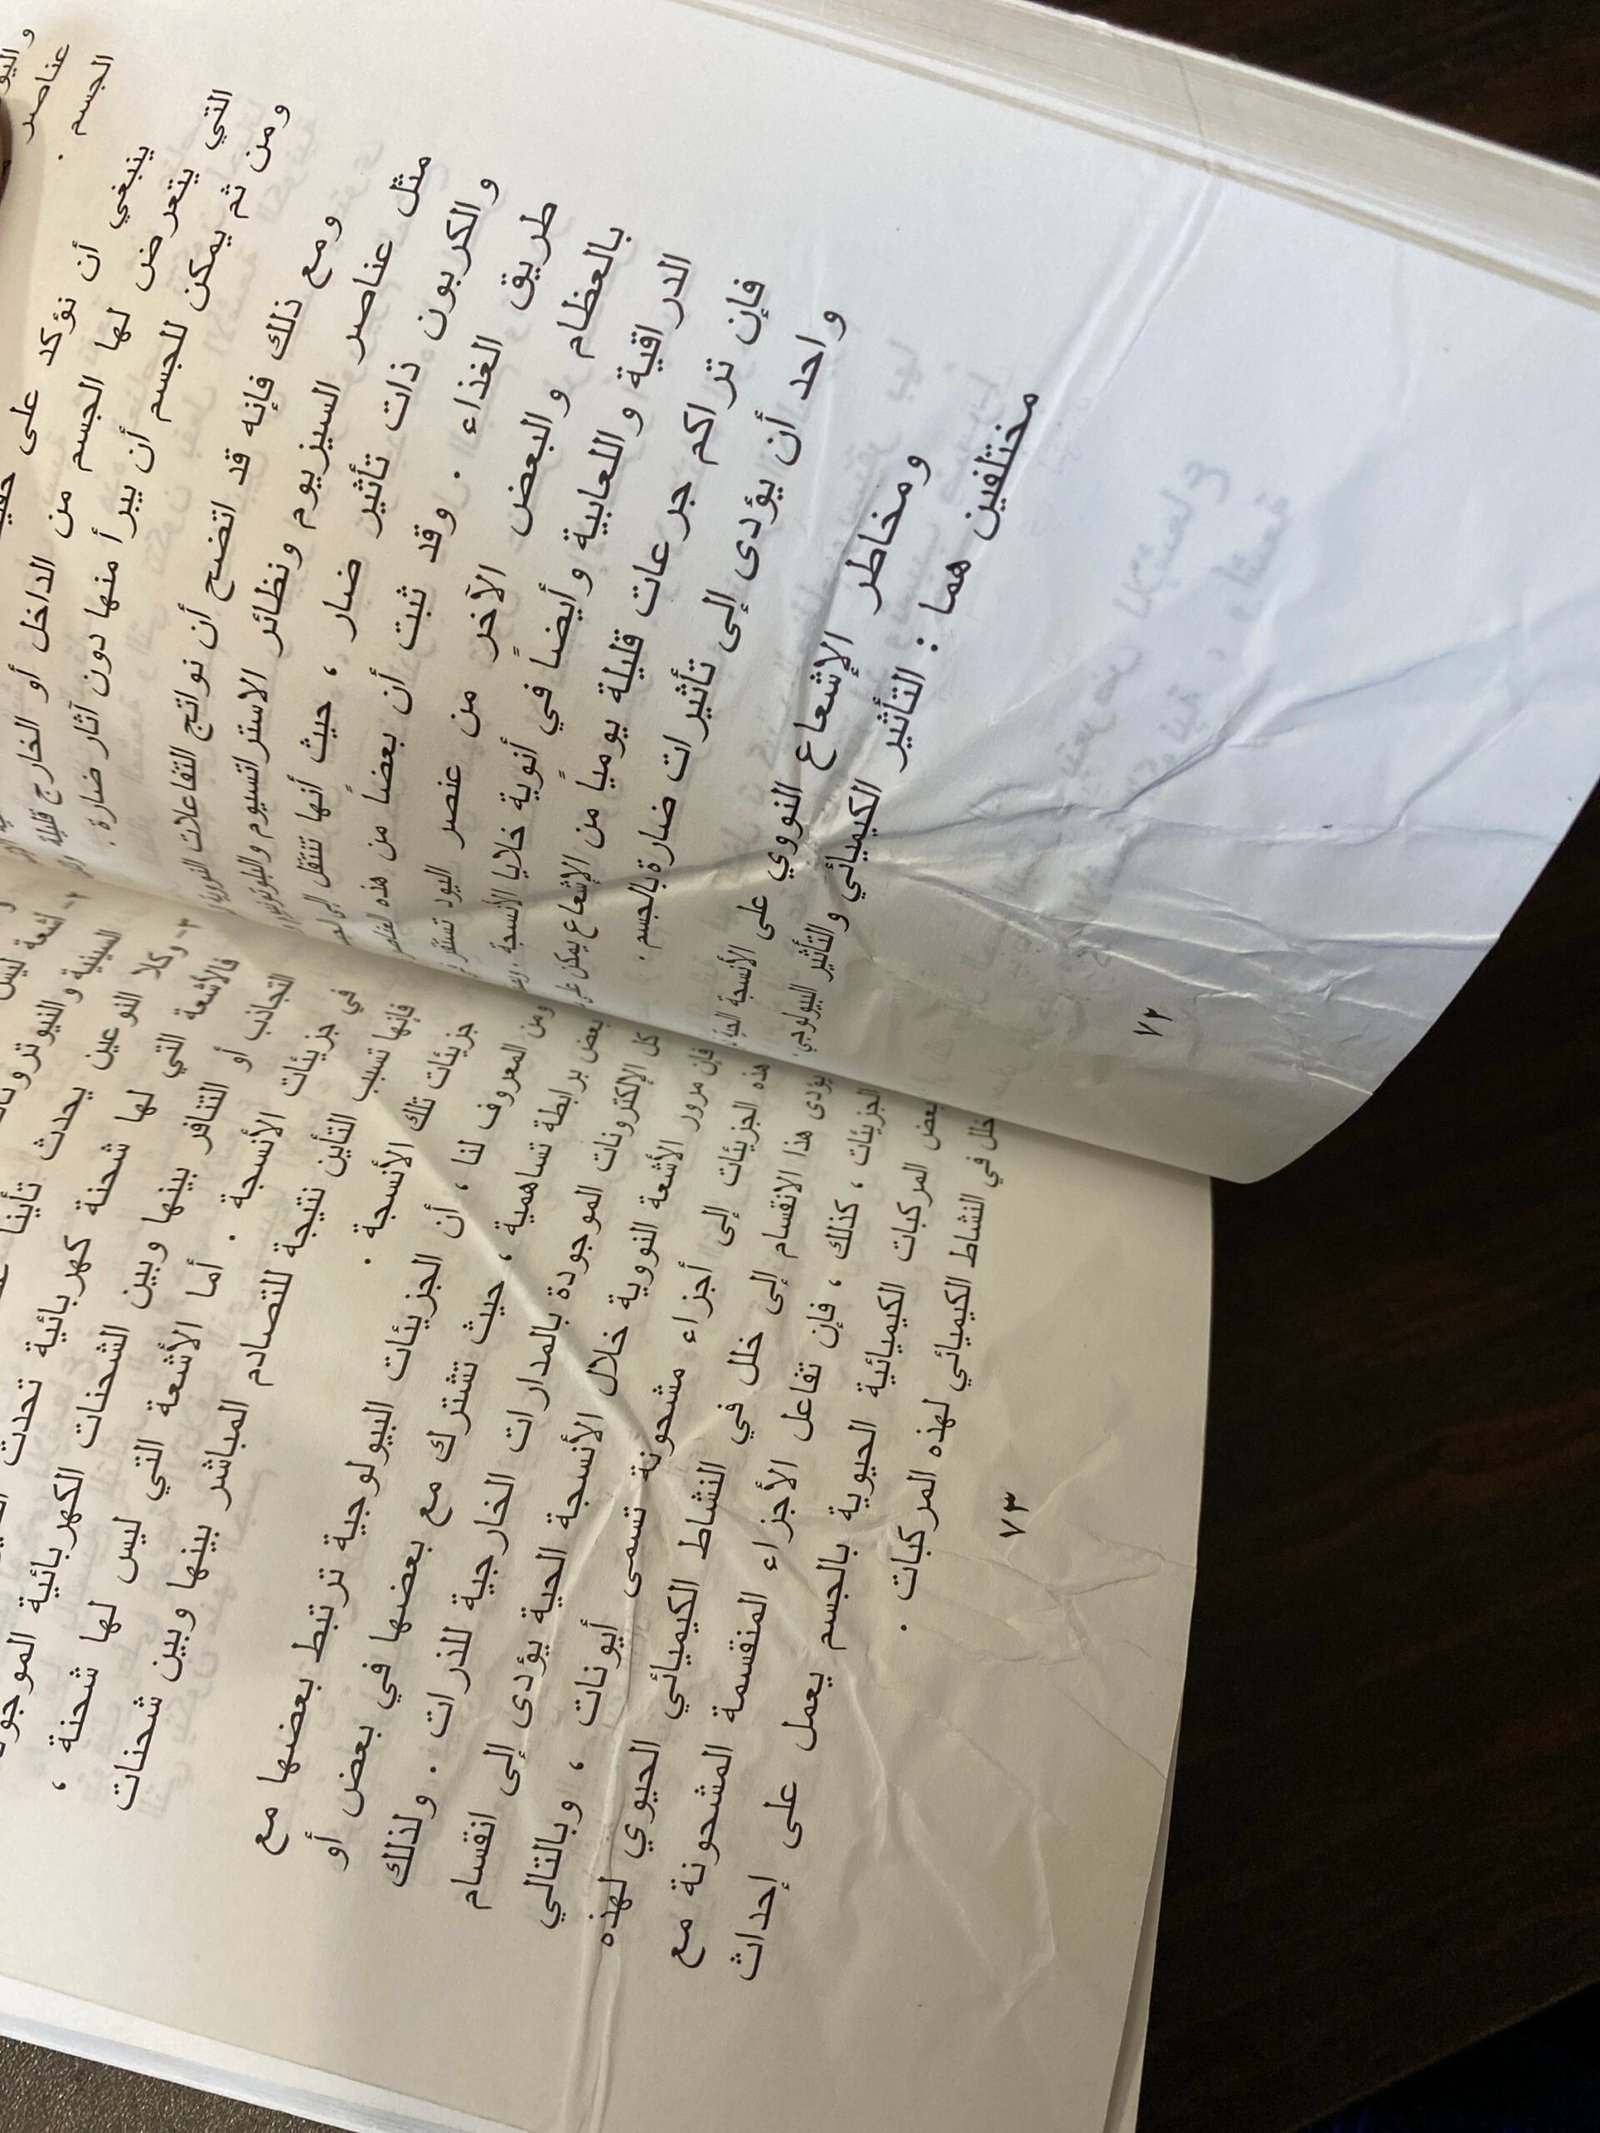 واليو
عناصر
الجسم .
ينبغي أن نؤكد على
التي يتعرض لها الجسم من الداخل أو الخارج قليلة
ومن ثم يمكن للجسم أن يبرأ منها دون آثار ضارة .
ومع ذلك فإنه قد اتضح أن نواتج التفاعلات النووية
مثل عناصر السيزيوم ونظائر الاستراتسيوم والبلوتونيوم
والكربون ذات تأثير ضار ، حيث أنها تنتقل إلى
طريق الغذاء . وقد ثبت أن بعضاً من هذه العناصر
بالعظام والبعض الآخر من عنصر اليود تستقر
الدراقية واللعابية وأيضاً في أنوية خلايا الأنسجة .
فإن تراكم جرعات قليلة يومياً من الإشعاع يمكن على
واحد أن يؤدى إلى تأثيرات ضارة بالجسم .
ومخاطر الإشعاع النووي على الأنسجة
مختلفين هما : التأثير الكيميائي والتأثير البيولوجي
٧٢
٢- أشعة ليس
السينية والنيوترونات
٣- وكلا النوعين يحدث تأينا
فالأشعة التي لها شحنة كهربائية تحدث
التجاذب أو التنافر بينها وبين الشحنات الكهربائية الموجودة
في جزيئات الأنسجة . أما الأشعة التي ليس لها شحنة ،
فإنها تسبب التأين نتيجة للتصادم المباشر بينها وبين شحنات
جزيئات تلك الأنسجة .
ومن المعروف لنا ، أن الجزيئات البيولوجية ترتبط بعضها مع
بعض برابطة تساهمية ، حيث تشترك مع بعضها في بعض أو
كل الإلكترونات الموجودة بالمدارات الخارجية للذرات . ولذلك
فإن مرور الأشعة النووية خلال الأنسجة الحية يؤدى إلى انقسام
هذه الجزيئات إلى أجزاء مشحونة تسمى أيونات ، وبالتالي
يؤدى هذا الانقسام إلى خلل في النشاط الكيميائي الحيوي لهذه
الجزيئات ، كذلك ، فإن تفاعل الأجزاء المنقسمة المشحونة مع
بعض المركبات الكيميائية الحيوية بالجسم يعمل على إحداث
خلل في النشاط الكيميائي لهذه المركبات .
٧٣